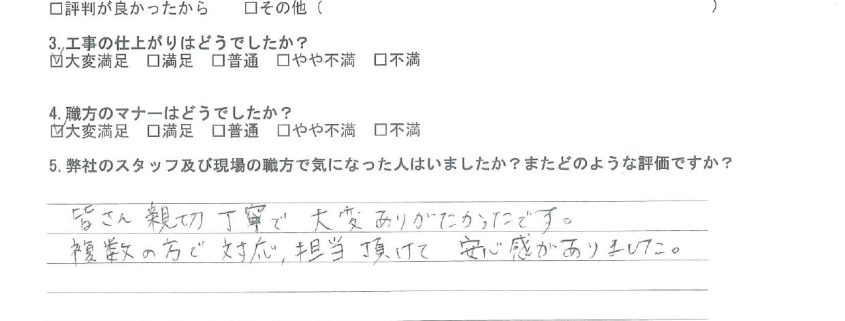 □評判が良かったから □その他（ ）
3.工事の仕上がりはどうでしたか？
☑大変満足 □満足 □普通 □やや不満 □不満
4.職方のマナーはどうでしたか？
☑大変満足 □満足 □普通 □やや不満 □不満
5.弊社のスタッフ及び現場の職方で気になった人はいましたか？またどのような評価ですか？
皆さん親切丁寧で大変ありがたかったです。
複数の方で対応,担当頂けて安心感がありました。